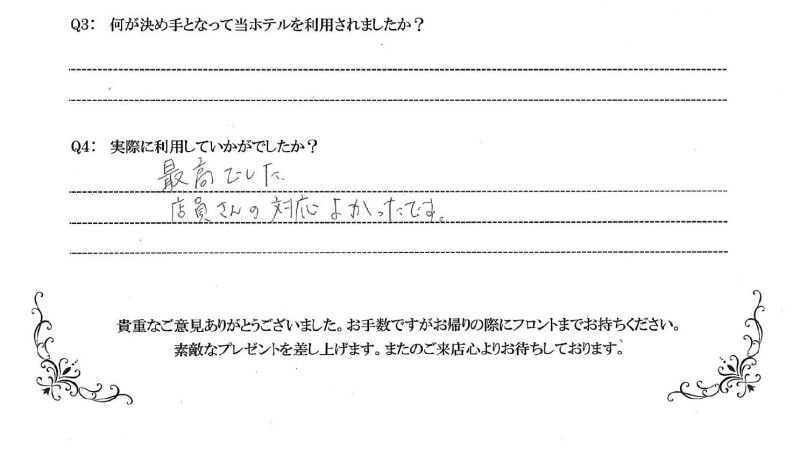 Q3: 何が決め手となって当ホテルを利用されましたか？
Q4: 実際に利用していかがでしたか？
最高でした
店員さんの対応よかったです。
貴重なご意見ありがとうございました。お手数ですがお帰りの際にフロントまでお持ちください。
素敵なプレゼントを差し上げます。またのご来店心よりお待ちしております。